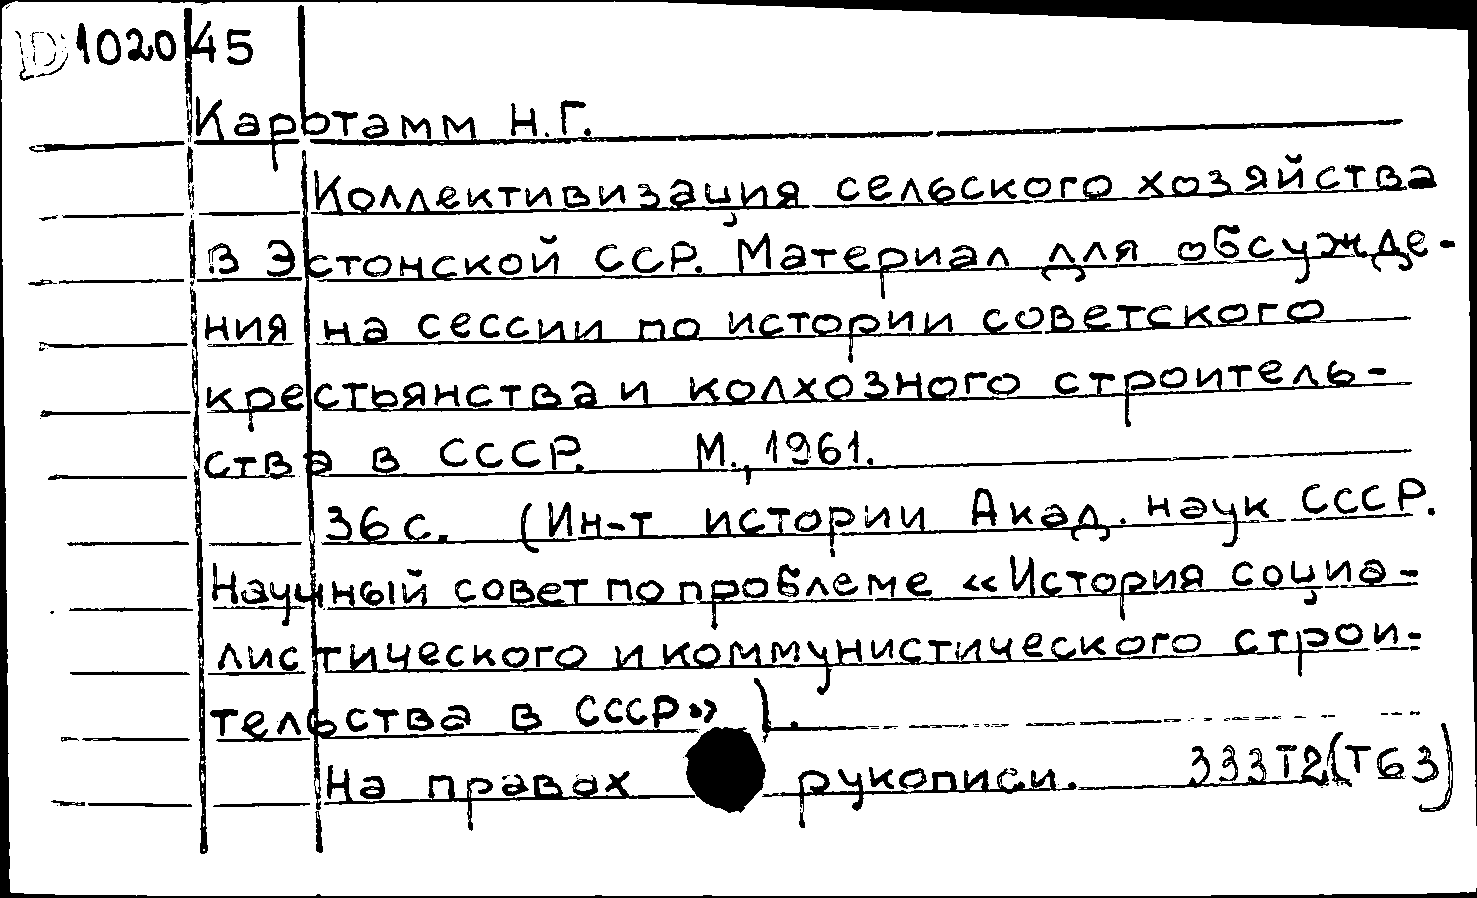 D1020/45
Каротамм Н.Г.
Коллективизация сельского хозяйства
в Эстонской ССР. Материал для обсужде-
ния на сессии по истории советского
крестьянства и колхозного строитель-
ства в СССР. М., 1961.
36 с. (Ин-т истории Акад. наук СССР.
Научный совет по проблеме «История социа-
листического и коммунистического строи-
тельства в СССР»).
На правах рукописи. 333Т2(Т63)